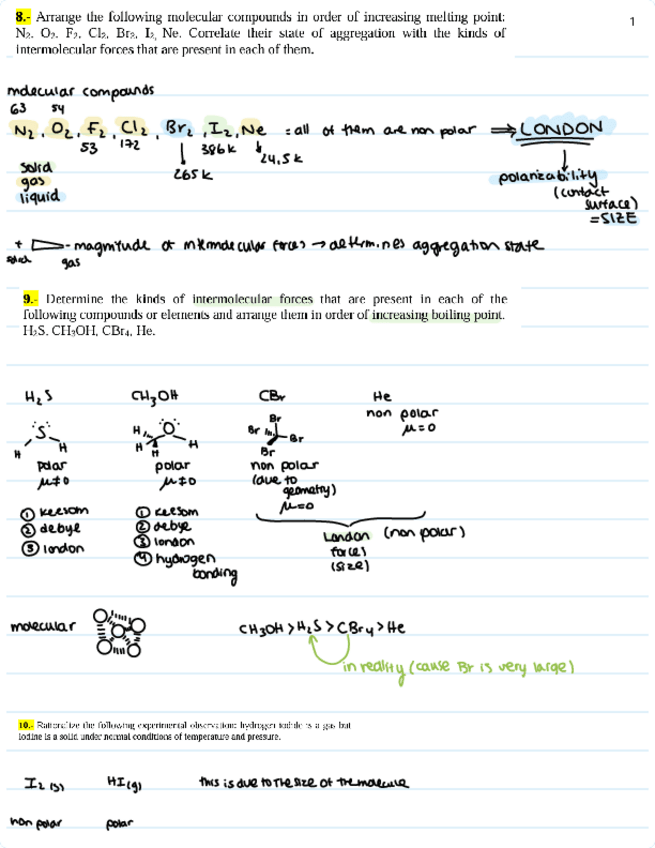 8.- Arrange the following molecular compounds in order of increasing melting point:
1
N₂, O₂, F₂, Cl₂, Br₂, I₂, Ne. Correlate their state of aggregation with the kinds of
intermolecular forces that are present in each of them.
molecular compounds
63 54
N₂, O₂, F₂, Cl₂, Br₂, I₂, Ne = all of them are non polar ⟹ LONDON
53 172 386k 24,5k
265k
solid
gas
liquid
polarizability
(contact
surface)
=SIZE
+ - magnitude of intermolecular forces → determines aggregation state
solid gas
9.- Determine the kinds of intermolecular forces that are present in each of the
following compounds or elements and arrange them in order of increasing boiling point.
H₂S, CH₃OH, CBr₄, He.
H₂S CH₃OH CBr He
S H H
H H H O H
Br Br Br Br
non polar
μ=0
polar
μ≠0
polar
μ≠0
non polar
(due to
geometry)
μ=0
① keesom
② debye
③ london
① keesom
② debye
③ london
④ hydrogen
bonding
London (non polar)
forces
(size)
molecular CH₃OH > H₂S > CBr₄ > He
in reality (cause Br is very large)
10.- Rationalize the following experimental observation: hydrogen iodide is a gas but
iodine is a solid under normal conditions of temperature and pressure.
I₂ (s) HI (g) this is due to the size of the molecule
non polar polar